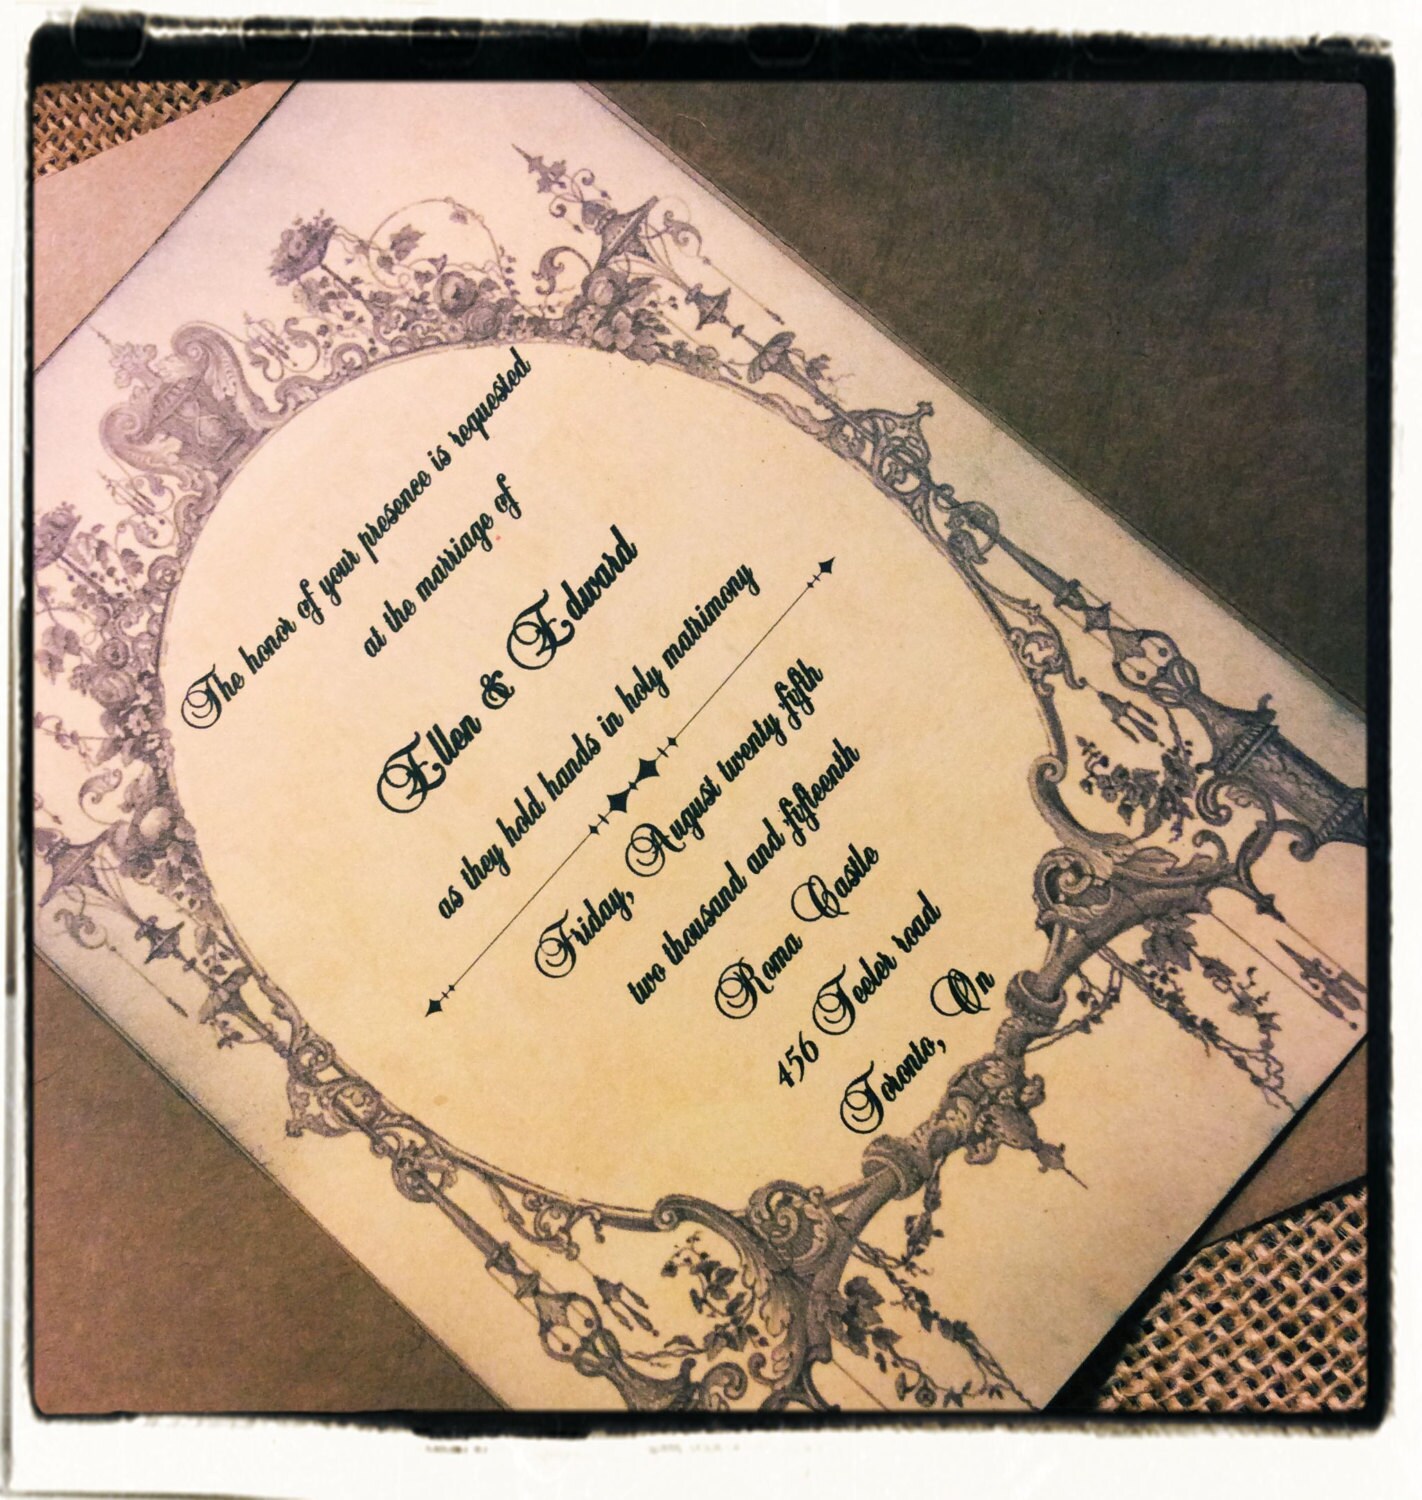 The honor of your presence is requested
at the marriage of
Ellen & Edward
as they hold hands in holy matrimony
Friday, August twenty fifth
two thousand and fifteenth
Roma Castle
456 Teeler road
Toronto, On